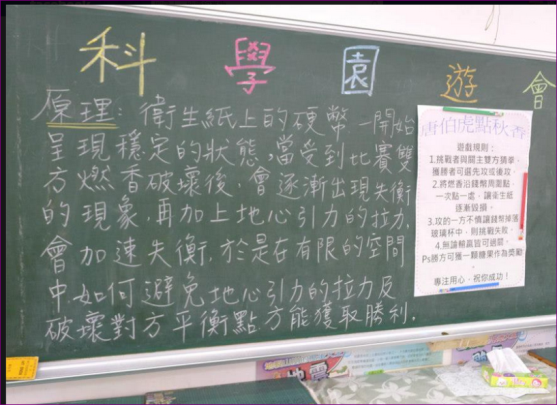 科學園遊會
原理：衛生紙上的硬幣一開始
呈現穩定的狀態，當受到比賽雙
方燃香破壞後，會逐漸出現失衡
的現象，再加上地心引力的拉力，
會加速失衡，於是在有限的空間
中如何避免地心引力的拉力及
破壞對方平衡點方能獲取勝利．
唐伯虎點秋香
遊戲規則：
1.挑戰者與關主雙方猜拳，
獲勝者可選先攻或後攻．
2.將燃香沿錢幣周圍點，
一次點一處，讓衛生紙
逐漸毀損．
3.攻的一方不慎讓錢幣掉落
玻璃杯中，則挑戰失敗．
4.無論輸贏皆可過關．
Ps勝方可獲一顆糖果作為獎勵．
專注用心，祝你成功！
地震